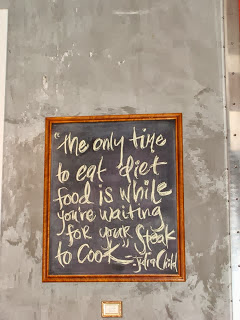 "The only time
to eat diet
food is while
you're waiting
for your steak
to cook"
- Julia Child